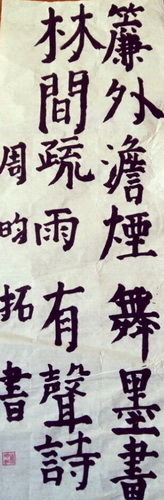 簾外澹煙舞墨畫
林間疏雨有聲詩
周昀拓書